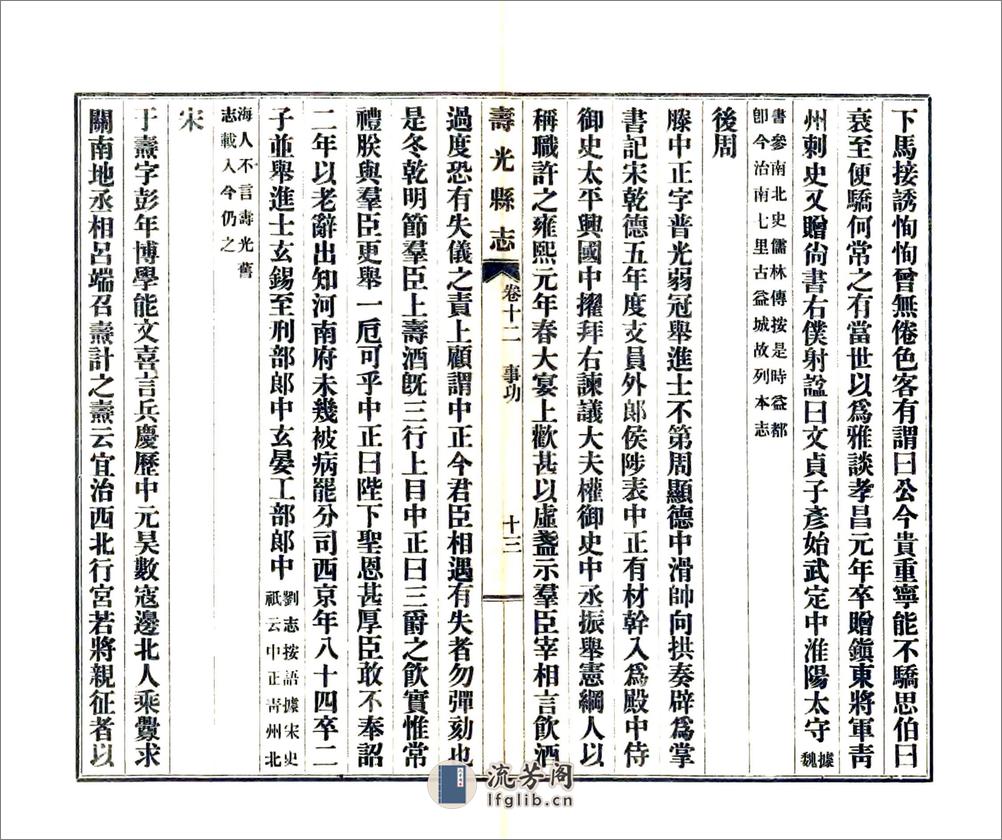 下馬接誘恂恂曾無倦色客有謂曰公今貴重寧能不驕思伯曰
衰至便驕何常之有當世以爲雅談孝昌元年卒贈鎭東將軍靑
州刺史又贈尙書右僕射諡曰文貞子彥始武定中淮陽太守據魏
書參南北史儒林傳按是時益都
卽今治南七里古益城故列本志
後周
滕中正字普光弱冠舉進士不第周顯德中滑帥向拱奏辟爲掌
書記宋乾德五年度支員外郞侯陟表中正有材幹入爲殿中侍
御史太平興國中擢拜右諫議大夫權御史中丞振舉憲綱人以
稱職許之雍熙元年春大宴上歡甚以虛盞示羣臣宰相言飮酒
壽光縣志 卷十二 事功 十三
過度恐有失儀之責上顧謂中正今君臣相遇有失者勿彈劾也
是冬乾明節羣臣上壽酒旣三行上目中正曰三爵之飮實惟常
禮朕與羣臣更舉一卮可乎中正曰陛下聖恩甚厚臣敢不奉詔
二年以老辭出知河南府未幾被病罷分司西京年八十四卒二
子並舉進士玄錫至刑部郞中玄晏工部郞中
劉志按語據宋史
祇云中正靑州北
海人不言壽光舊
志載入今仍之
宋
于燾字彭年博學能文喜言兵慶歷中元昊數寇邊北人乘釁求
關南地丞相呂端召燾計之燾云宜治西北行宮若將親征者以
流芳阁
lfglib.cn